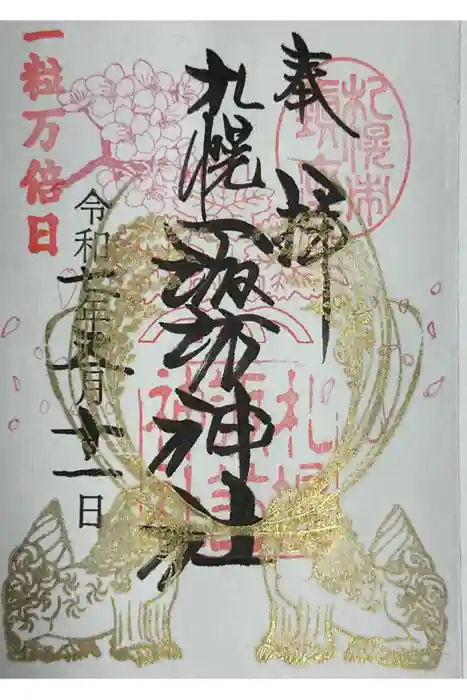 奉拝
札幌市
鎮座
札幌諏訪神社
札幌
諏訪
神社
一粒万倍日
令和七年月十一日